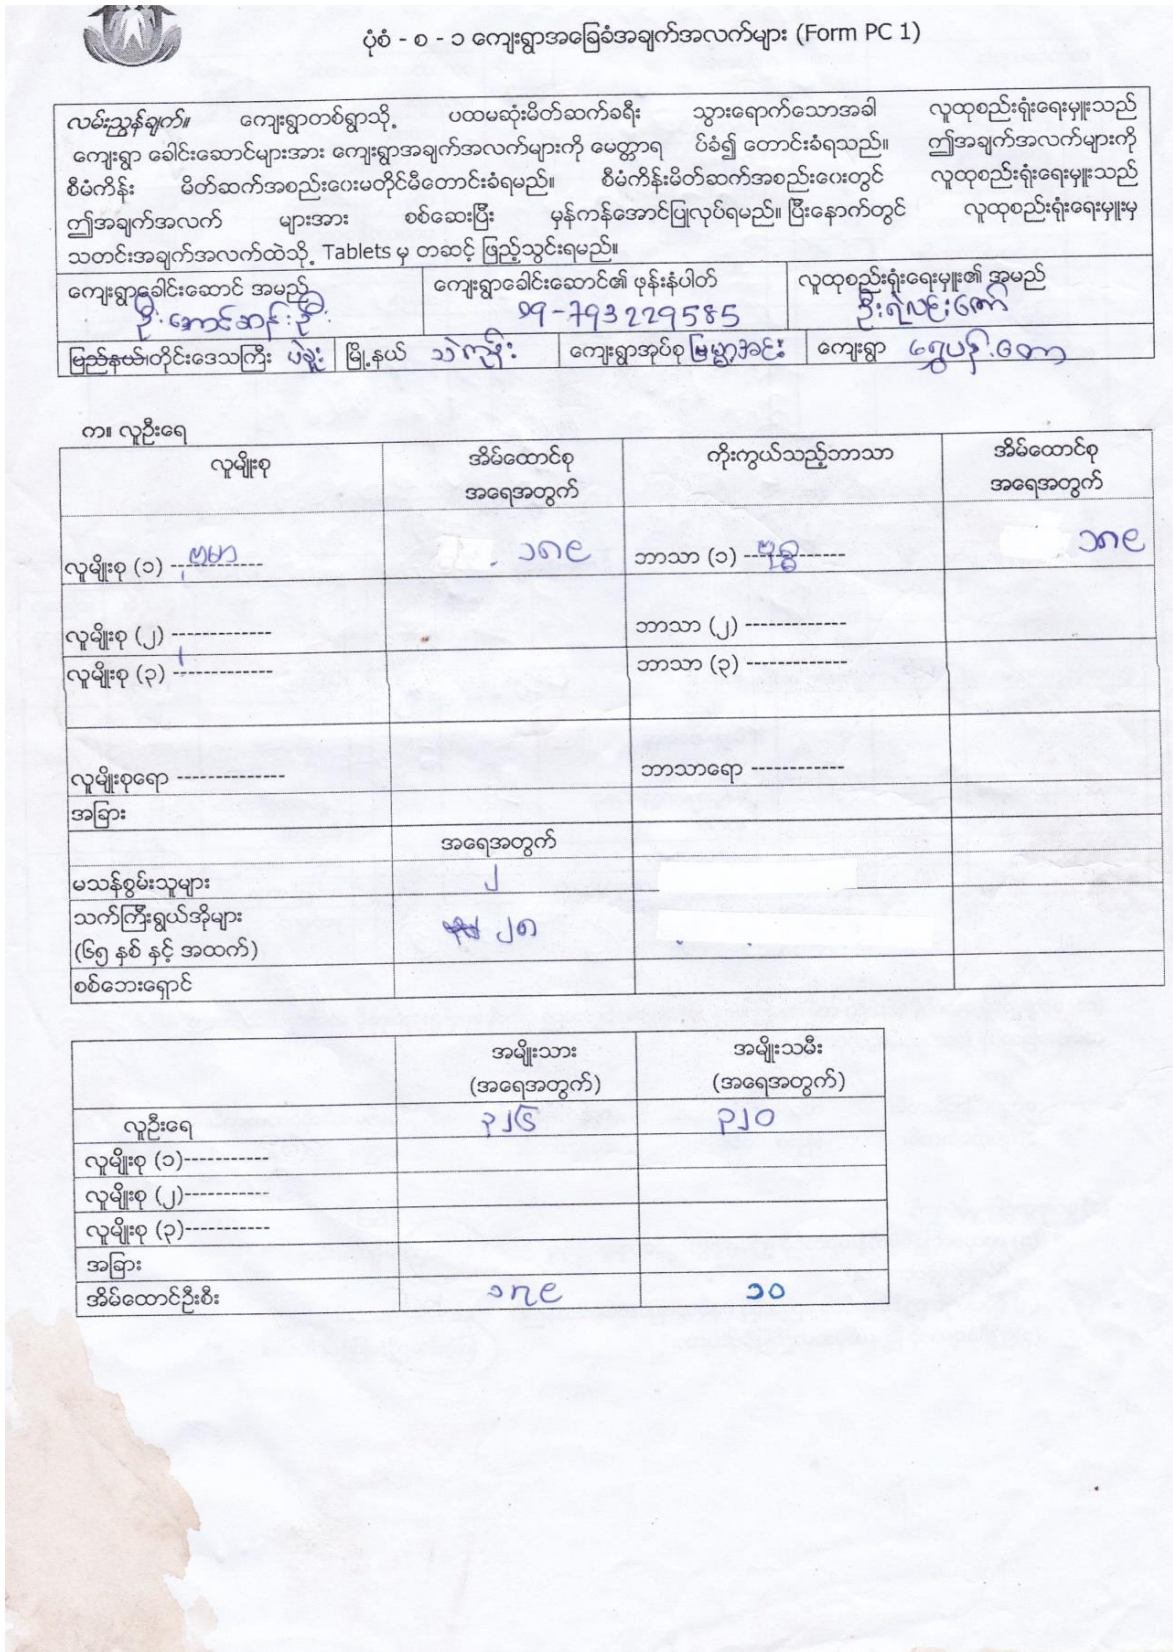 ပုံစံ - စ - ၁ ကျေးရွာအခြေခံအချက်အလက်များ (Form PC 1)
လမ်းညွှန်ချက်။ ကျေးရွာတစ်ရွာသို့ ပထမဆုံးမိတ်ဆက်ခရီး သွားရောက်သောအခါ လူထုစည်းရုံးရေးမှူးသည်
ကျေးရွာ ခေါင်းဆောင်များအား ကျေးရွာအချက်အလက်များကို မေတ္တာရ ပ်ခံ၍ တောင်းခံရသည်။ ဤအချက်အလက်များကို
စီမံကိန်း မိတ်ဆက်အစည်းဝေးမတိုင်မီတောင်းခံရမည်။ စီမံကိန်းမိတ်ဆက်အစည်းဝေးတွင် လူထုစည်းရုံးရေးမှူးသည်
ဤအချက်အလက် များအား စစ်ဆေးပြီး မှန်ကန်အောင်ပြုလုပ်ရမည်။ ပြီးနောက်တွင် လူထုစည်းရုံးရေးမှူးမှ
သတင်းအချက်အလက်ထဲသို့ Tablets မှ တဆင့် ဖြည့်သွင်းရမည်။
ကျေးရွာခေါင်းဆောင် အမည် ကျေးရွာခေါင်းဆောင်၏ ဖုန်းနံပါတ် လူထုစည်းရုံးရေးမှူး၏ အမည်
ဦးအောင်ဆန်းဦး 09-793229585 ဦးရဲလင်းဇော်
ပြည်နယ်/တိုင်းဒေသကြီး ပဲခူး မြို့နယ် သဲကုန်း ကျေးရွာအုပ်စု ကျေးရွာ ရွှေပန်းတော
က။ လူဦးရေ
လူမျိုးစု အိမ်ထောင်စု ကိုးကွယ်သည့်ဘာသာ အိမ်ထောင်စု
အရေအတွက် အရေအတွက်
လူမျိုးစု (၁) ဗမာ ၁၈၉ ဘာသာ (၁) ဗုဒ္ဓ ၁၈၉
လူမျိုးစု (၂) ------------- ဘာသာ (၂) -------------
လူမျိုးစု (၃) ------------- ဘာသာ (၃) -------------
လူမျိုးစုရော -------------- ဘာသာရော ------------
အခြား
အရေအတွက်
မသန်စွမ်းသူများ ၂
သက်ကြီးရွယ်အိုများ ၂၈
(၆၅ နှစ် နှင့် အထက်)
စစ်ဘေးရှောင်
အမျိုးသား အမျိုးသမီး
(အရေအတွက်) (အရေအတွက်)
လူဦးရေ ၃၂၆ ၃၂၀
လူမျိုးစု (၁)-----------
လူမျိုးစု (၂)-----------
လူမျိုးစု (၃)-----------
အခြား
အိမ်ထောင်ဦးစီး ၁၇၉ ၁၀